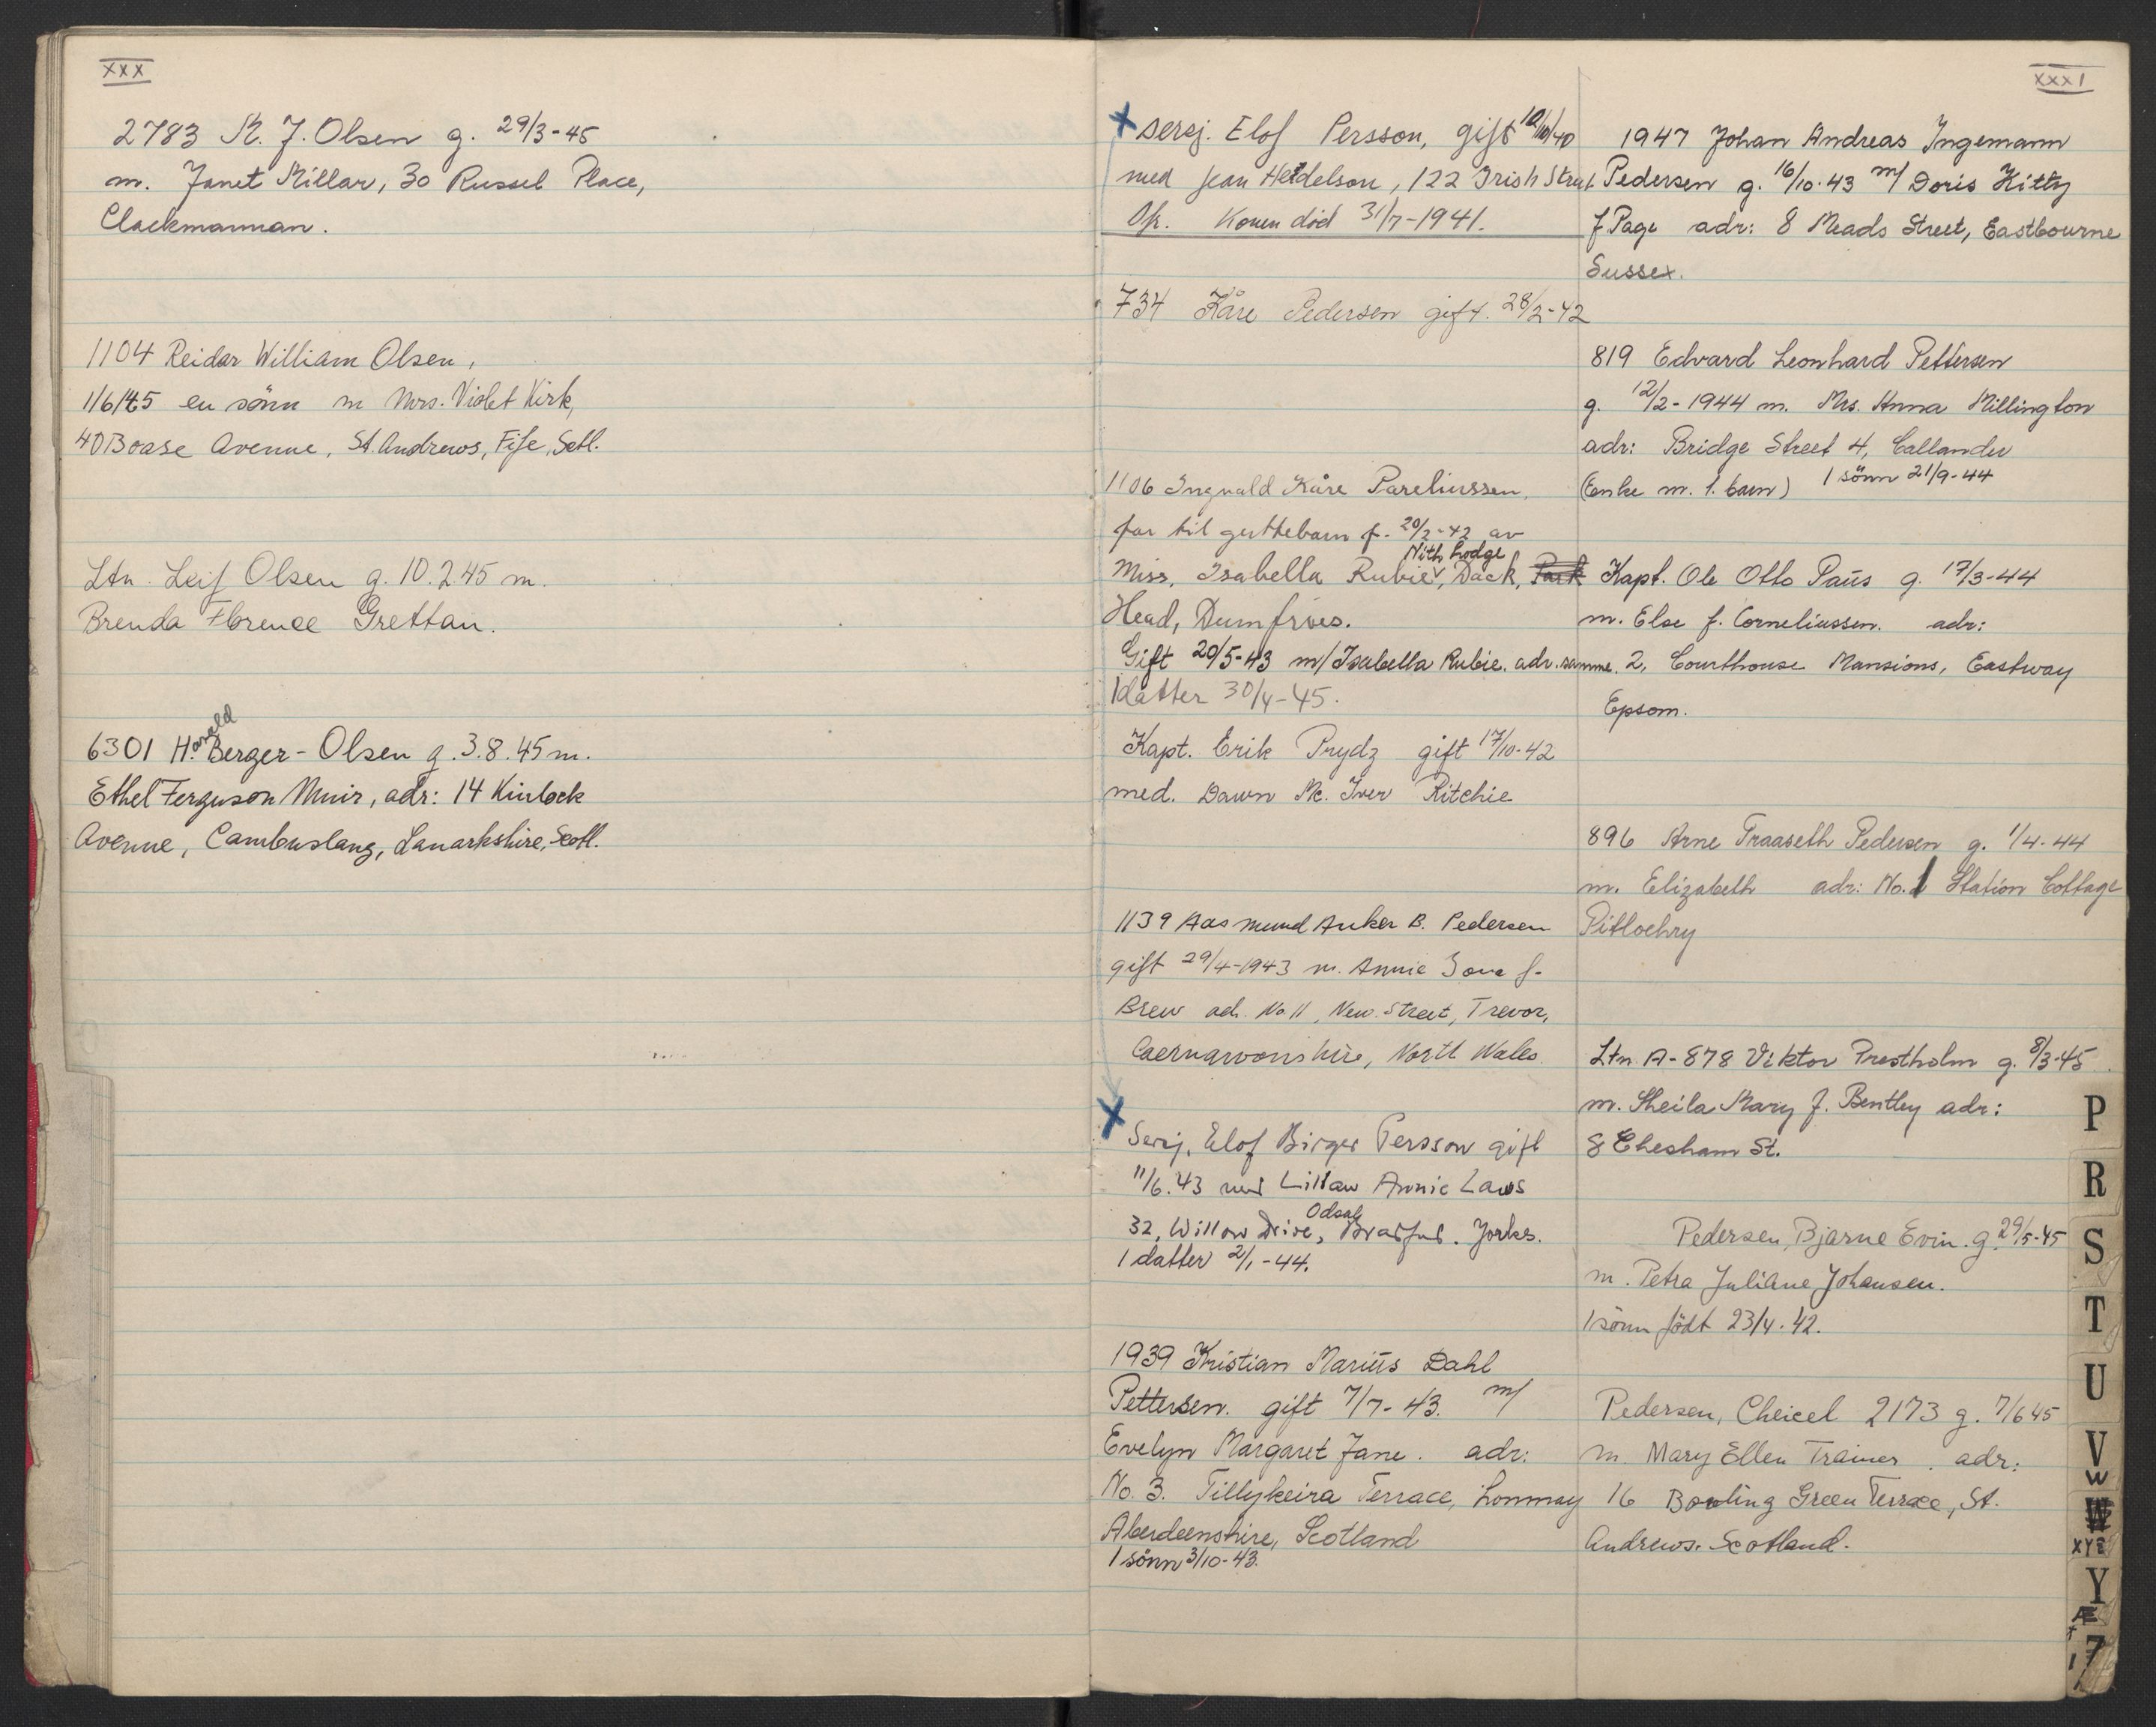 XXX
2783 K. J. Olsen g. 29/3-45
m. Janet Millar, 30 Russel Place,
Clackmannan.
1104 Reidar William Olsen,
1/6/45 en sönn m Mrs. Violet Kirk,
40 Boase Avenue, St. Andrews, Fife, Scotl.
Ltn. Leif Olsen g. 10.2.45 m.
Brenda Florence Grettan.
6301 Harald Berger-Olsen g. 3.8.45 m.
Ethel Ferguson Muir, adr: 14 Kinlock
Avenue, Cambuslang, Lanarkshire, Scotl.
XXXI
x sersj. Elof Persson, gift 12/10/40
med Jean, 122 Irish Street
Konen död 31/7-1941.
734 Kåre Pedersen gift. 28/2-42
1106 Ingvald Kåre Pareliussen,
far til guttebarn f. 20/2-42 av
Nith Lodge
Miss, Isabella Rubie, Dock, Park
Head, Dumfries.
Gift 20/5-43 m/ Isabella Rubie. adr. samme.
1 datter 30/4-45.
Kapt. Erik Prydz gift 17/10-42
med. Dawn Mc. Iver Ritchie
1139 Aasmund Anker B. Pedersen
gift 29/4-1943 m. Annie Iona f.
Brew adr. No 11, New Street, Trevor,
Caernarvonshire, North Wales
x Sersj. Elof Birger Persson gift
11/6.43 med Lillian Annie Laws
Odsal
32, Willow Drive, Bradford. Yorks.
1 datter 2/1-44.
1939 Kristian Marius Dahl
Pettersen. gift 7/7-43. m/
Evelyn Margaret Jane. adr:
No. 3. Tillykeira Terrace, Lonmay
Aberdeenshire, Scotland
1 sönn 3/10-43.
1947 Johan Andreas Ingemann
Pedersen g. 16/10.43 m/ Doris Kitty
f Page adr: 8 Meads Street, Eastbourne
Sussex.
819 Edvard Leonhard Pettersen
g. 12/2-1944 m. Mrs. Anna Millington
adr: Bridge Street 4, Callander
(Enke m. 1. barn) 1 sönn 21/9-44
Kapt. Ole Otto Paus g. 17/3-44
m. Else f. Corneliussen. adr:
2, Courthouse Mansions, Eastway
Epsom.
896 Arne Traaseth Pedersen g. 1/4-44
m. Elizabeth adr: No. 1 Station Cottage
Pitlochry
Ltn A-878 Viktor Prestholm g. 8/3-45
m. Sheila Mary f. Bentley adr:
8 Chesham St.
Pedersen, Bjarne Evin. g. 29/5-45
m. Petra Juliane Johansen.
1 sönn födt 23/4.42.
Pedersen, Cheicel 2173 g. 7/6 45
m. Mary Ellen Trainer. adr:
16 Bowling Green Terrace, St.
Andrews. Scotland.
P
R
S
T
U
V
W
W
XYZ
Y
Æ